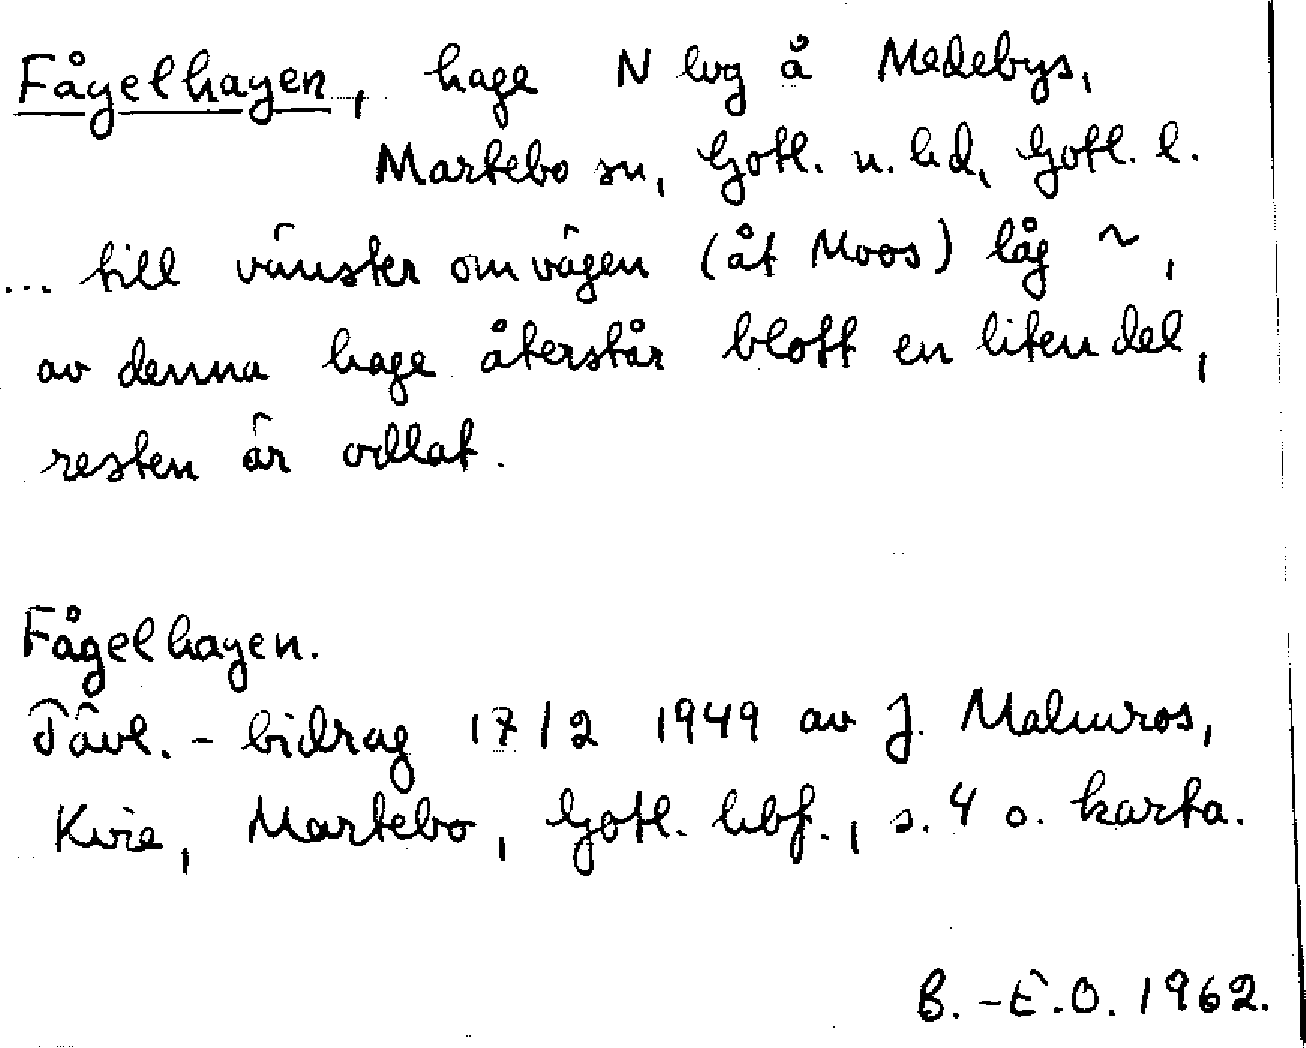 Fågelhagen, hage N lvg å Medebys,
Martebo sn, Gotl. n. hd, Gotl. l.
... till vänster om vägen (åt Moos) låg ~,
av denna hage återstår blott en liten del,
resten är odlat.
Fågelhagen.
Tävl.-bidrag 17/2 1949 av J. Malmros,
Kvie, Martebo, Gotl. hbf., s. 4 o. karta.
B.-E.O. 1962.